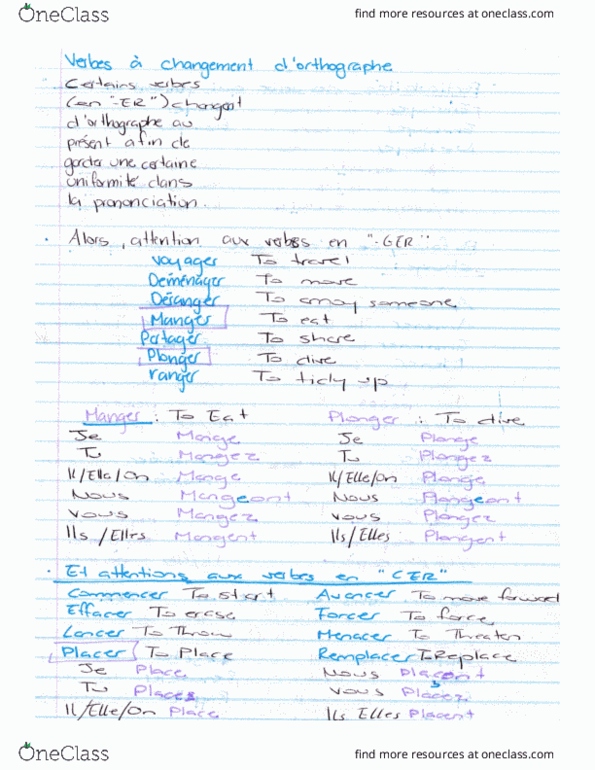 OneClass
find more resources at oneclass.com
Verbes à changement d'orthographe
Certains verbes
(en "-ER") changent
d'orthographe au
présent afin de
garder une certaine
uniformité dans
la prononciation.
• Alors, attention aux verbes en "-GER"
Voyager To travel
Deménager To move
Déranger To annoy someone
Manger To eat
Partager To share
Plonger To dive
ranger To tidy up
Manger : To Eat Plonger : To dive
Je Mange Je Plonge
Tu Mangez Tu Plongez
Il/Elle/On Mange Il/Elle/On Plonge
Nous Mangeont Nous Plongeont
Vous Mangez Vous Plongez
Ils/Elles Mangent Ils/Elles Plongent
• Et attentions aux verbes en "CER"
Commencer To start Avancer To move forward
Effacer To erase Forcer To force
Lancer To Throw Menacer To Threaten
Placer To Place Remplacer To Replace
Je Place Nous Plaçont
Tu Places Vous Placez
Il/Elle/On Place Ils Elles Placent
OneClass
find more resources at oneclass.com